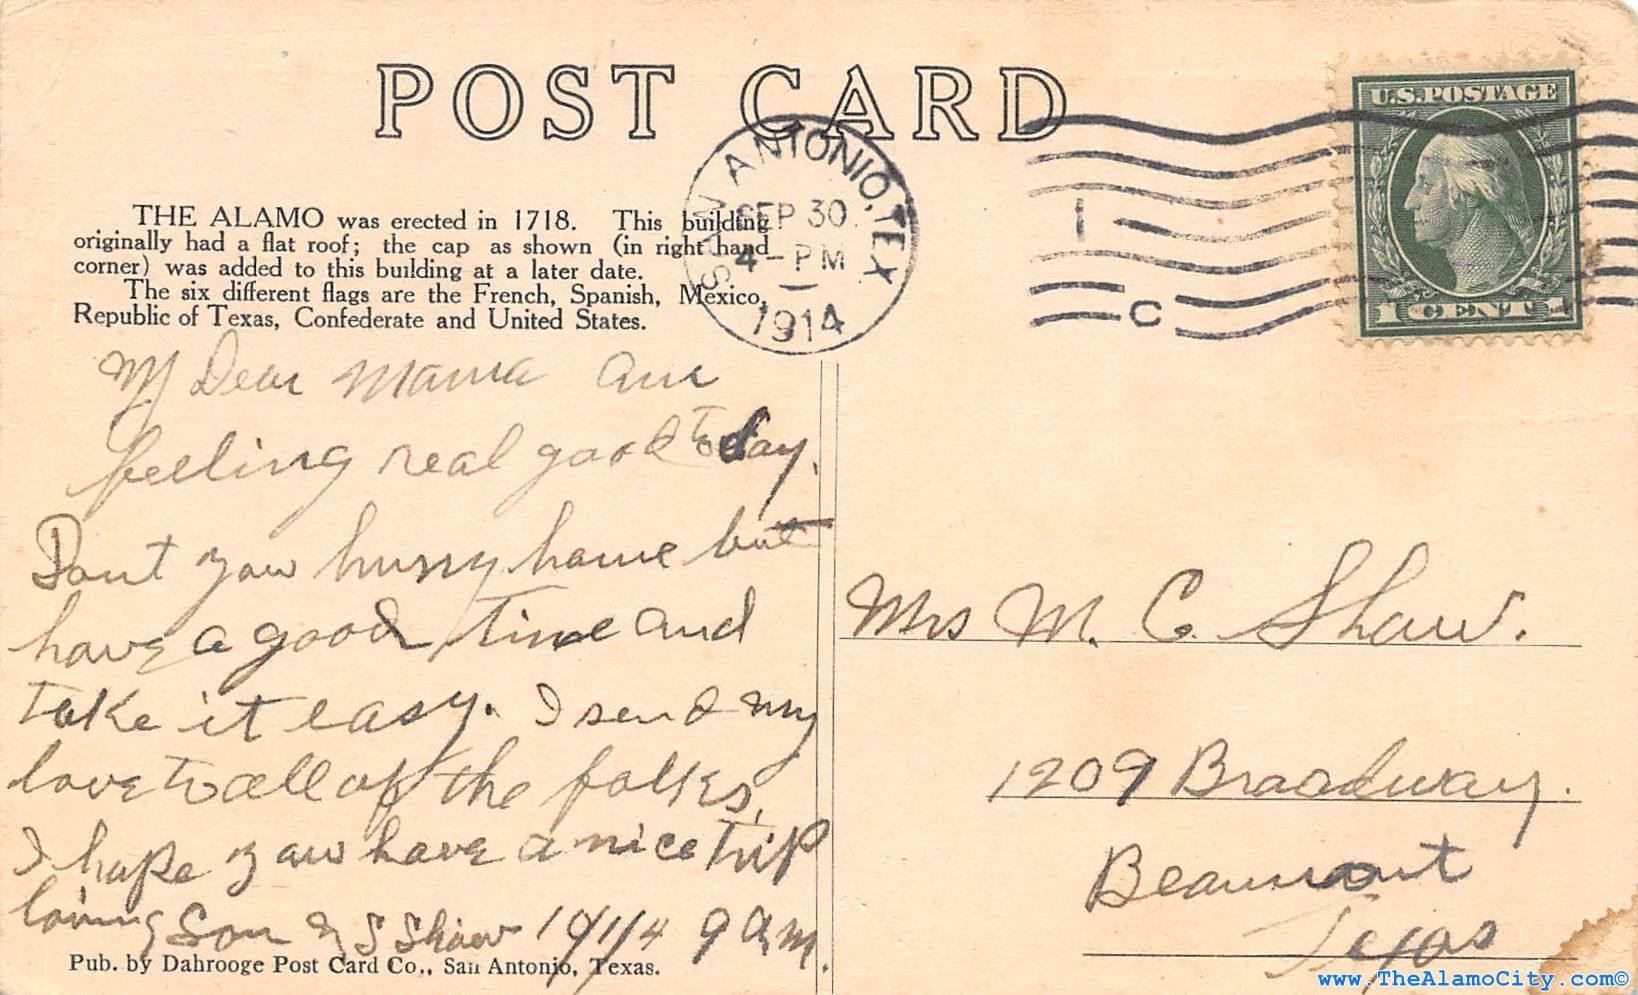 POST CARD
U.S. POSTAGE
1 CENT 1
SAN ANTONIO, TEX
SEP 30
4-PM
1914
1
C
THE ALAMO was erected in 1718. This building
originally had a flat roof; the cap as shown (in right hand
corner) was added to this building at a later date.
The six different flags are the French, Spanish, Mexico,
Republic of Texas, Confederate and United States.
My Dear Mama am
feeling real good Today.
Dont you hurry home but
have a good time and
take it easy. I send my
love to all of the folks,
I hope you have a nice trip
loving Son S Shaw 10/1/14 9 a.m.
Pub. by Dahrooge Post Card Co., San Antonio, Texas.
Mrs M. C. Shaw.
1209 Broadway.
Beaumont
Texas
www.TheAlamoCity.com©